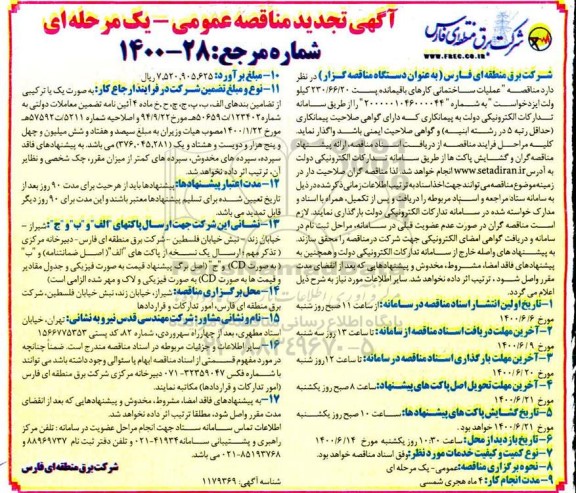 آگهی تجدید مناقصه عمومی – یک مرحله ای
شماره مرجع: ۲۸-۱۴۰۰
شرکت برق منطقه ای فارس
www.frec.co.ir
شرکت برق منطقه ای فارس (به عنوان دستگاه مناقصه گزار) در نظر
دارد مناقصه "عملیات ساختمانی کارهای باقیمانده پست ۲۳۰/۶۶/۲۰ کیلو
ولت ایزدخواست" به شماره "۲۰۰۰۰۰۱۰۴۶۰۰۰۰۴۴" را از طریق سامانه
تدارکات الکترونیکی دولت به پیمانکاری که دارای گواهی صلاحیت پیمانکاری
(حداقل رتبه ۵ در رشته ابنیه) و گواهی صلاحیت ایمنی باشد واگذار نماید.
کلیه مراحل فرآیند مناقصه از دریافت اسناد مناقصه تا ارائه پیشنهاد
مناقصه گران و گشایش پاکت ها از طریق سامانه تدارکات الکترونیکی دولت
به آدرس www.setadiran.ir انجام خواهد شد. لذا مناقصه گران صلاحیت دار در
زمینه موضوع مناقصه می توانند جهت اخذ اسناد به ترتیب اطلاعات زمانی ذکر شده در ذیل
به سامانه ستاد مراجعه و اسناد مربوطه را دریافت و پس از تکمیل، همراه با اسناد و
مدارک خواسته شده در سامانه تدارکات الکترونیکی دولت بارگذاری نمایند. لازم
است مناقصه گران در صورت عدم عضویت قبلی در سامانه، مراحل ثبت نام در
سامانه و دریافت گواهی امضای الکترونیکی جهت شرکت در مناقصه را محقق سازند.
به پیشنهادهای واصله خارج از سامانه تدارکات الکترونیکی دولت و همچنین به
پیشنهادهای فاقد امضاء، مشروط، مخدوش و پیشنهادهایی که بعد از انقضاء مدت
مقرر واصل شود، ترتیب اثر داده نخواهد شد. سایر اطلاعات مورد نیاز به شرح ذیل
اعلام می گردد:
۱- تاریخ اولین انتشار اسناد مناقصه در سامانه: از ساعت ۱۱ صبح روز شنبه
مورخ ۱۴۰۰/۶/۶
۲- آخرین مهلت دریافت اسناد مناقصه از سامانه: تا ساعت ۱۳ روز سه شنبه
مورخ ۱۴۰۰/۶/۹
۳- آخرین مهلت بارگذاری اسناد مناقصه در سامانه: تا ساعت ۱۲ روز شنبه
مورخ ۱۴۰۰/۶/۲۰
۴- آخرین مهلت تحویل اصل پاکت های پیشنهاد: ساعت ۸ صبح روز یکشنبه
مورخ ۱۴۰۰/۶/۲۱
۵- تاریخ گشایش پاکت های پیشنهادها: ساعت ۱۰ صبح روز یکشنبه
مورخ ۱۴۰۰/۶/۲۱ خواهد بود.
۶- تاریخ بازدید از محل: ساعت ۱۰:۳۰ روز یکشنبه مورخ ۱۴۰۰/۶/۱۴
۷- نوع کمیت و کیفیت خدمات مورد نظر: وفق اسناد مناقصه خواهد بود.
۸- نحوه برگزاری مناقصه: عمومی- یک مرحله ای
۹- مدت انجام کار: ۴ ماه هجری شمسی
۱۰- مبلغ برآورد: ۷,۵۲۰,۹۰۵,۶۲۵ ریال
۱۱- نوع و مبلغ تضمین شرکت در فرآیند ارجاع کار: به صورت یک یا ترکیبی
از تضامین بندهای الف، ب، پ، ج، چ، ح، خ ماده ۴ آئین نامه تضمین معاملات دولتی به
شماره ۱۲۳۴۰۲/ت۵۰۶۵۹هـ مورخ ۹۴/۹/۲۲ و اصلاحیه شماره ۵۲۱۱/ت۵۷۵۹۲هـ
مورخ ۱۴۰۰/۱/۲۲ مصوب هیات وزیران به مبلغ سیصد و هفتاد و شش میلیون و چهل
و پنج هزار و دویست و هشتاد و یک (۳۷۶,۰۴۵,۲۸۱) می باشد. به پیشنهادهای فاقد
سپرده، سپرده های مخدوش، سپرده های کمتر از میزان مقرر، چک شخصی و نظایر
آن، ترتیب اثر داده نخواهد شد.
۱۲- مدت اعتبار پیشنهادها: پیشنهادها باید از هر حیث برای مدت ۹۰ روز بعد از
تاریخ تعیین شده برای تسلیم پیشنهادها معتبر باشند و این مدت برای ۹۰ روز دیگر
قابل تمدید می باشد.
۱۳- نشانی این شرکت جهت ارسال پاکتهای "الف" و "ب" و "ج": شیراز -
خیابان زند - نبش خیابان فلسطین - شرکت برق منطقه ای فارس- دبیرخانه مرکزی
(تذکر مهم: ارسال یک نسخه از پاکت های "الف" (اصل ضمانتنامه) و "ب"
(به صورت CD) و "ج" (اصل برگ پیشنهاد قیمت به صورت فیزیکی و جدول مقادیر
و قیمت ها به صورت CD) به صورت فیزیکی و لاک و مهر شده الزامی است)
۱۴- محل برگزاری مناقصه: شیراز، خیابان زند، نبش خیابان فلسطین، شرکت
برق منطقه ای فارس، امور تدارکات و قراردادها
۱۵- نام و نشانی مشاور: شرکت مهندسی قدس نیرو به نشانی: تهران، خیابان
استاد مطهری، بعد از چهارراه سهروردی، شماره ۸۲ کد پستی ۱۵۶۶۷۷۵۳۵۳
۱۶- سایر اطلاعات و جزئیات مربوطه در اسناد مناقصه مندرج است. ضمناً چنانچه
در مورد مفهوم قسمتی از اسناد مناقصه ابهام یا سئوالی وجود داشته باشد می توانند
با شماره فکس ۳۲۳۵۹۰۴۷-۰۷۱ دبیرخانه مرکزی شرکت برق منطقه ای فارس
(امور تدارکات و قراردادها) مکاتبه نمایند.
۱۷- به پیشنهادهای فاقد امضا، مشروط، مخدوش و پیشنهادهایی که بعد از انقضای
مدت مقرر واصل شود، مطلقا ترتیب اثر داده نخواهد شد.
اطلاعات تماس سامانه ستاد جهت انجام مراحل عضویت در سامانه: تلفن مرکز
راهبری و پشتیبانی سامانه ۴۱۹۳۴-۰۲۱ و تلفن دفتر ثبت نام ۸۸۹۶۹۷۳۷ و
۸۵۱۹۳۷۶۸-۰۲۱ می باشد.
شناسه آگهی: ۱۱۷۹۳۶۹
شرکت برق منطقه ای فارس